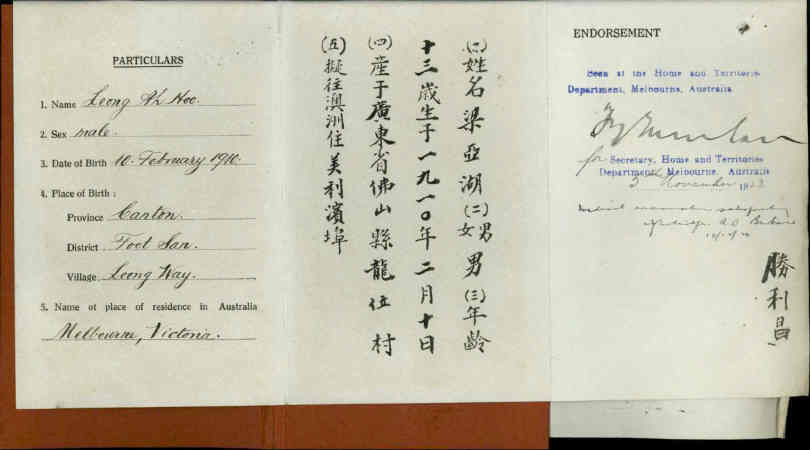 PARTICULARS
1. Name Leong Ah Hoo.
2. Sex male.
3. Date of Birth 10. February 1910.
4. Place of Birth :
Province Canton.
District Foct San.
Village Leong Way.
5. Name of place of residence in Australia
Melbourne, Victoria.
(一)姓名梁亞湖(二)男女男(三)年齡
十三歲生于一九一〇年二月十日
(四)產于廣東省佛山縣龍位村
(五)擬往澳洲住美利濱埠
ENDORSEMENT
Seen at the Home and Territories
Department, Melbourne, Australia
for Secretary, Home and Territories
Department, Melbourne, Australia
November 1923
Medical examination
勝利昌